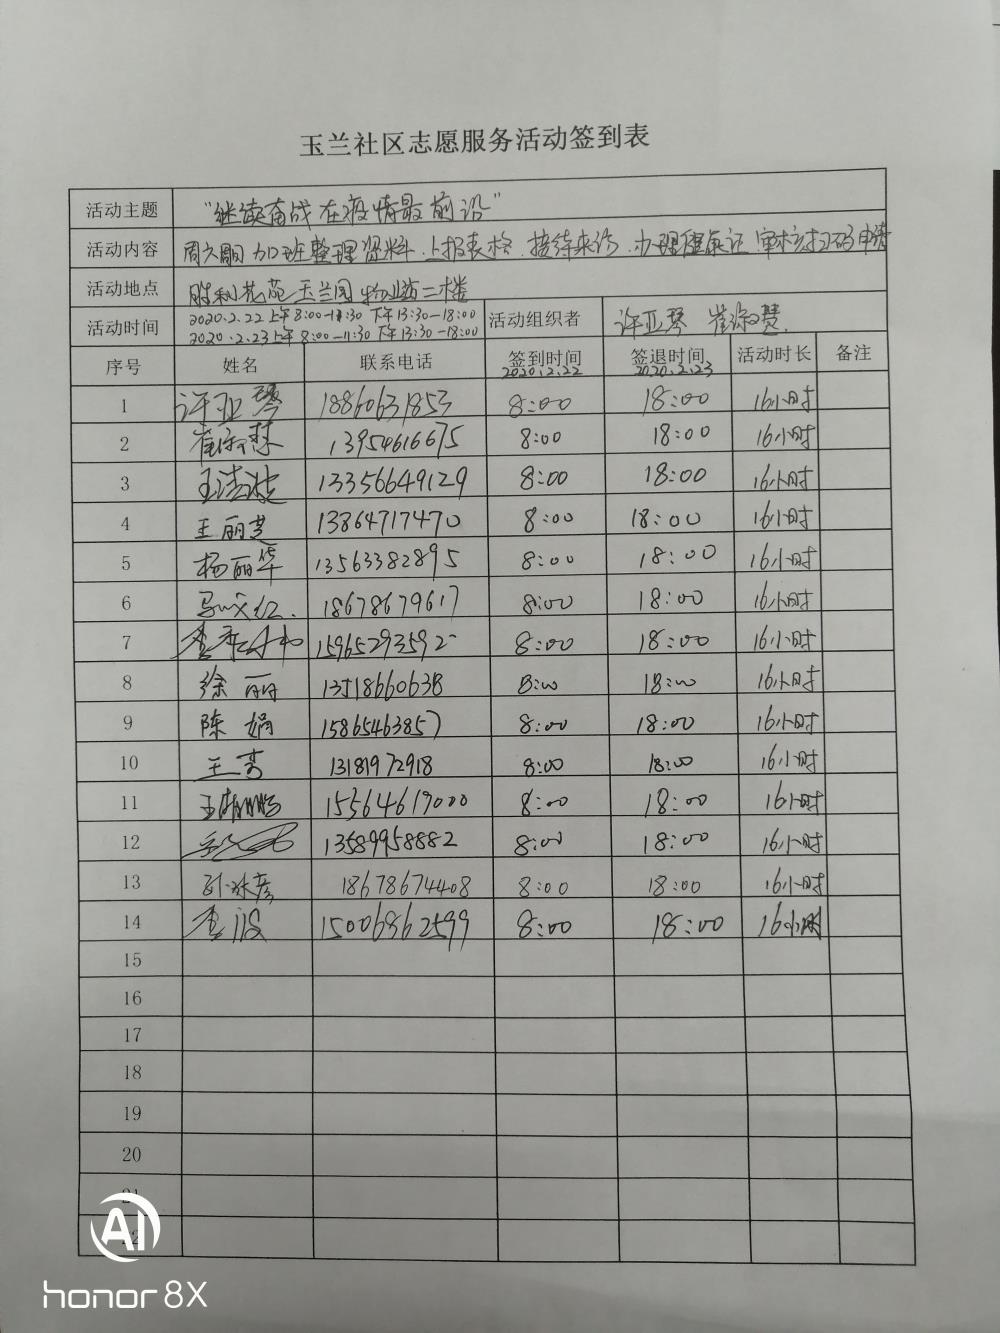 玉兰社区志愿服务活动签到表
活动主题 "继续奋战在疫情最前沿"
活动内容 周六周日加班整理资料.上报表格.接待来访.办理健康证.审核扫码申请
活动地点 胜利花苑玉兰园物业站二楼
活动时间 2020.2.22上午8:00-11:30 下午13:30-18:00
2020.2.23上午8:00-11:30下午13:30-18:00
活动组织者 许亚琴
序号 姓名 联系电话 签到时间 2020.2.22 签退时间 2020.2.23 活动时长 备注
1 许亚琴 18860631853 8:00 18:00 16小时
2 13954616675 8:00 18:00 16小时
3 13356649129 8:00 18:00 16小时
4 王丽 13864717470 8:00 18:00 16小时
5 杨丽华 13563382895 8:00 18:00 16小时
6 18678679617 8:00 18:00 16小时
7 15965293592 8:00 18:00 16小时
8 徐丽 8:00 18:00 16小时
9 陈娟 15865463857 8:00 18:00 16小时
10 王秀 13181972918 8:00 18:00 16小时
11 15564619000 8:00 18:00 16小时
12 13589958882 8:00 18:00 16小时
13 孙冰彦 18678674408 8:00 18:00 16小时
14 李波 15006862599 8:00 18:00 16小时
15
16
17
18
19
20
21
22
AI
honor 8X